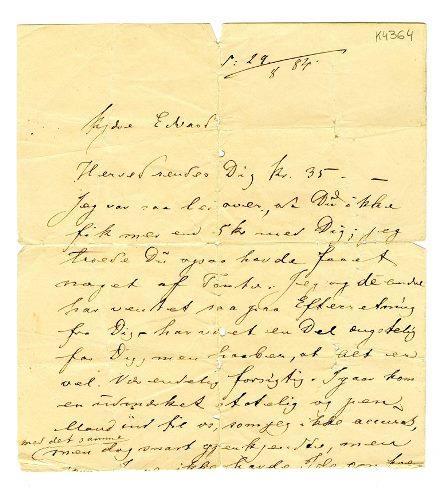 K4364
29/8 84.
Kjære Edvard
Herved sendes Dig kr. 35. –
Jeg var saa lei over, at Du ikke
fik mer end 5 kr med Dig; jeg
troede Du ogsaa havde faaet
noget af Tante. Jeg og de andre
har ventet saa paa Efterretning
fra Dig – har været en Del ængstelig
for Dig, men haaber, at alt er
vel. Vær endelig forsigtig. Igaar kom
en udmærket statelig og pen
Mand ind til os, som jeg ikke accurat,
med det samme
men dog snart gjenkjendte, men
ikke havde